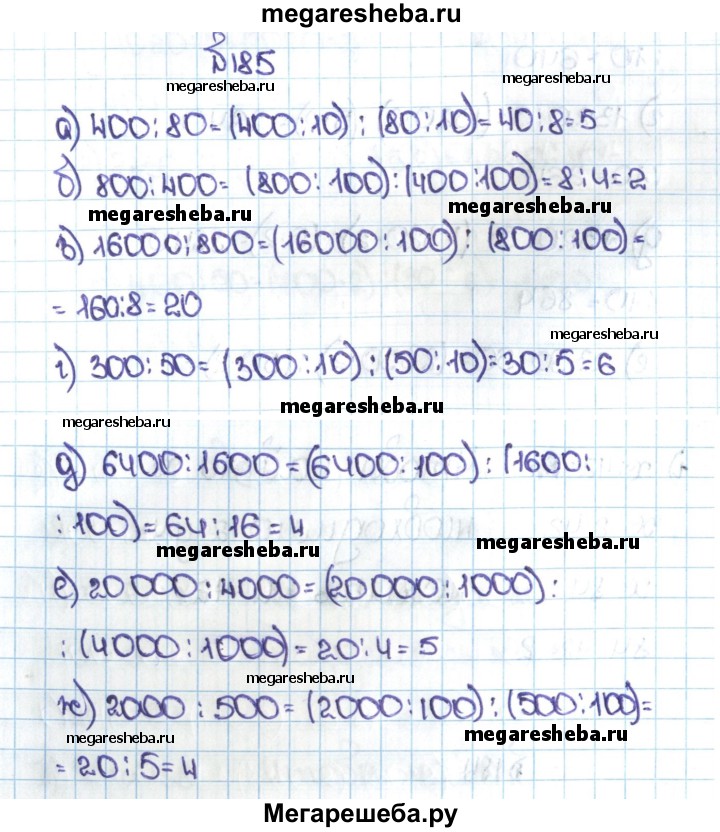 megaresheba.ru
№185
megaresheba.ru
а) 400:80=(400:10):(80:10)=40:8=5
б) 800:400= (800:100):(400:100)=8:4=2
megaresheba.ru megaresheba.ru
в) 16000:800=(16000:100): (800:100)=
=160:8=20
megaresheba.ru
г) 300:50=(300:10):(50:10)=30:5=6
megaresheba.ru
megaresheba.ru
д) 6400:1600=(6400:100):(1600:
:100)=64:16=4
megaresheba.ru megaresheba.ru
е) 20000:4000=(20000:1000):
:(4000:1000)=20:4=5
megaresheba.ru
ж) 2000:500=(2000:100):(500:100)=
megaresheba.ru megaresheba.ru
=20:5=4
Мегарешеба.ру